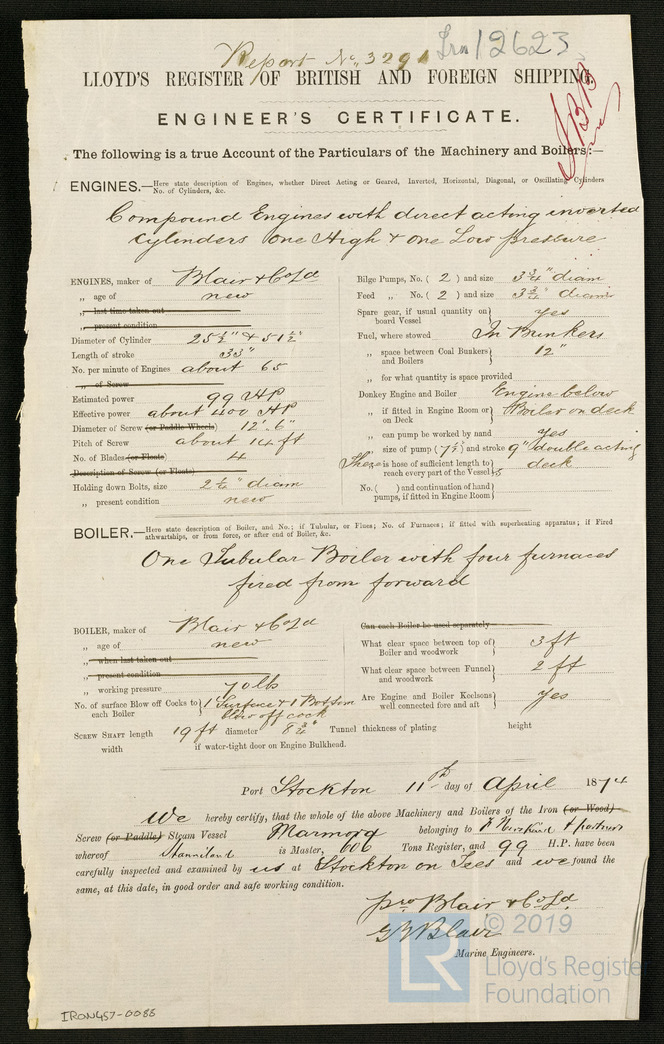 Report No. 3291 Irn 12623
LLOYD'S REGISTER OF BRITISH AND FOREIGN SHIPPING.
ENGINEER'S CERTIFICATE.
The following is a true Account of the Particulars of the Machinery and Boilers:—
ENGINES.—Here state description of Engines, whether Direct Acting or Geared, Inverted, Horizontal, Diagonal, or Oscillating Cylinders
No. of Cylinders, &c.
Compound Engines with direct acting inverted
cylinders one High & one Low pressure
ENGINES, maker of Blair & Co Ld
„ age of new
„ last time taken out
„ present condition
Diameter of Cylinder 25½" & 51½"
Length of stroke 33"
No. per minute of Engines about 65
„ of Screw
Estimated power 99 HP
Effective power about 400 HP
Diameter of Screw (or Paddle Wheels) 12'.6"
Pitch of Screw about 14 ft
No. of Blades (or Floats) 4
Description of Screw (or Floats)
Holding down Bolts, size 2¼" diam
„ present condition new
Bilge Pumps, No. ( 2 ) and size 3¾" diam
Feed „ No. ( 2 ) and size 3¾" diam
Spare gear, if usual quantity on board Vessel } yes
Fuel, where stowed In Bunkers
„ space between Coal Bunkers and Boilers } 12"
„ for what quantity is space provided
Donkey Engine and Boiler Engine below
„ if fitted in Engine Room or on Deck } Boiler on deck
„ can pump be worked by hand yes
„ size of pump (7½) and stroke 9" double acting
There is hose of sufficient length to reach every part of the Vessel } deck
No. ( ) and continuation of hand pumps, if fitted in Engine Room }
BOILER.—Here state description of Boiler, and No.; if Tubular, or Flues; No. of Furnaces; if fitted with superheating apparatus; if Fired
athwartships, or from force, or after end of Boiler, &c.
One Tubular Boiler with four furnaces
fired from forward
BOILER, maker of Blair & Co Ld
„ age of new
„ when last taken out
„ present condition
„ working pressure 70 lbs
No. of surface Blow off Cocks to each Boiler } 1 Surface & 1 Bottom blow off cock
Can each Boiler be used separately
What clear space between top of Boiler and woodwork } 3 ft
What clear space between Funnel and woodwork } 2 ft
Are Engine and Boiler Keelsons well connected fore and aft } yes
SCREW SHAFT length 19 ft diameter 8¾" Tunnel thickness of plating height
width if water-tight door on Engine Bulkhead.
Port Stockton 11th day of April 1874
We hereby certify, that the whole of the above Machinery and Boilers of the Iron (or Wood)
Screw (or Paddle) Steam Vessel Marmora belonging to & partners
whereof Stanniland is Master, 606 Tons Register, and 99 H.P. have been
carefully inspected and examined by us at Stockton on Tees and we found the
same, at this date, in good order and safe working condition.
pro Blair & Co Ld
G Y Blair
Marine Engineers.
© 2019
Lloyd's Register
Foundation
LR
IRON457-0088